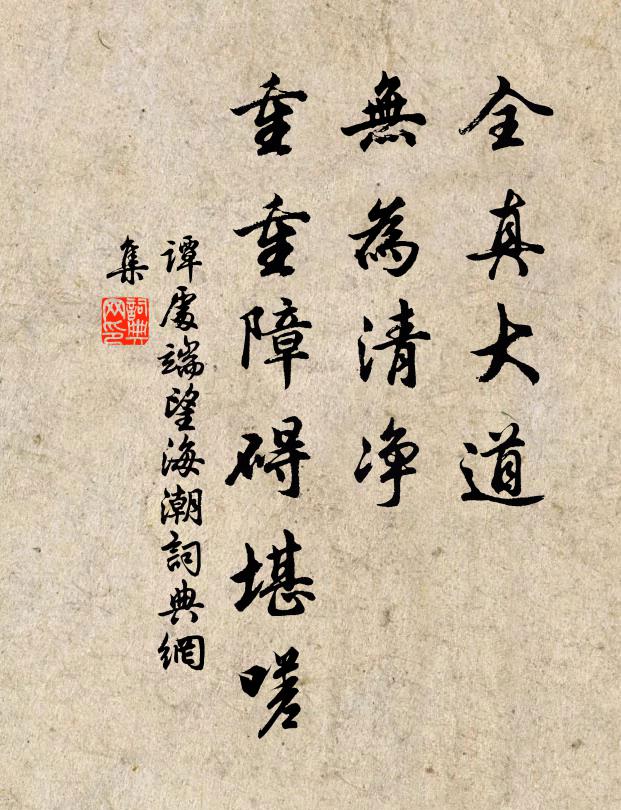 全真大道
無為清净
重重障碍堪嗟
谭處端望海潮詞典網
集
詞典網印